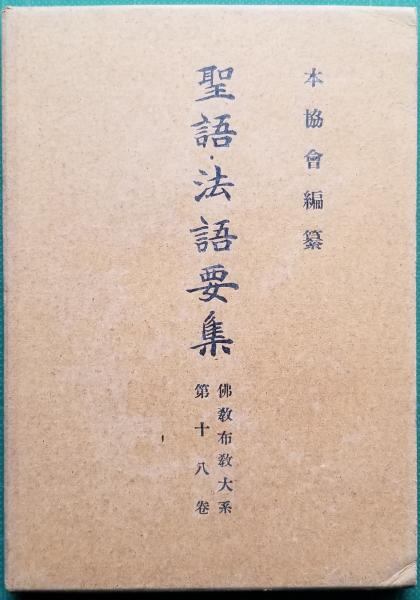 本協會編纂
聖語・法語要集
佛教布教大系
第十八卷